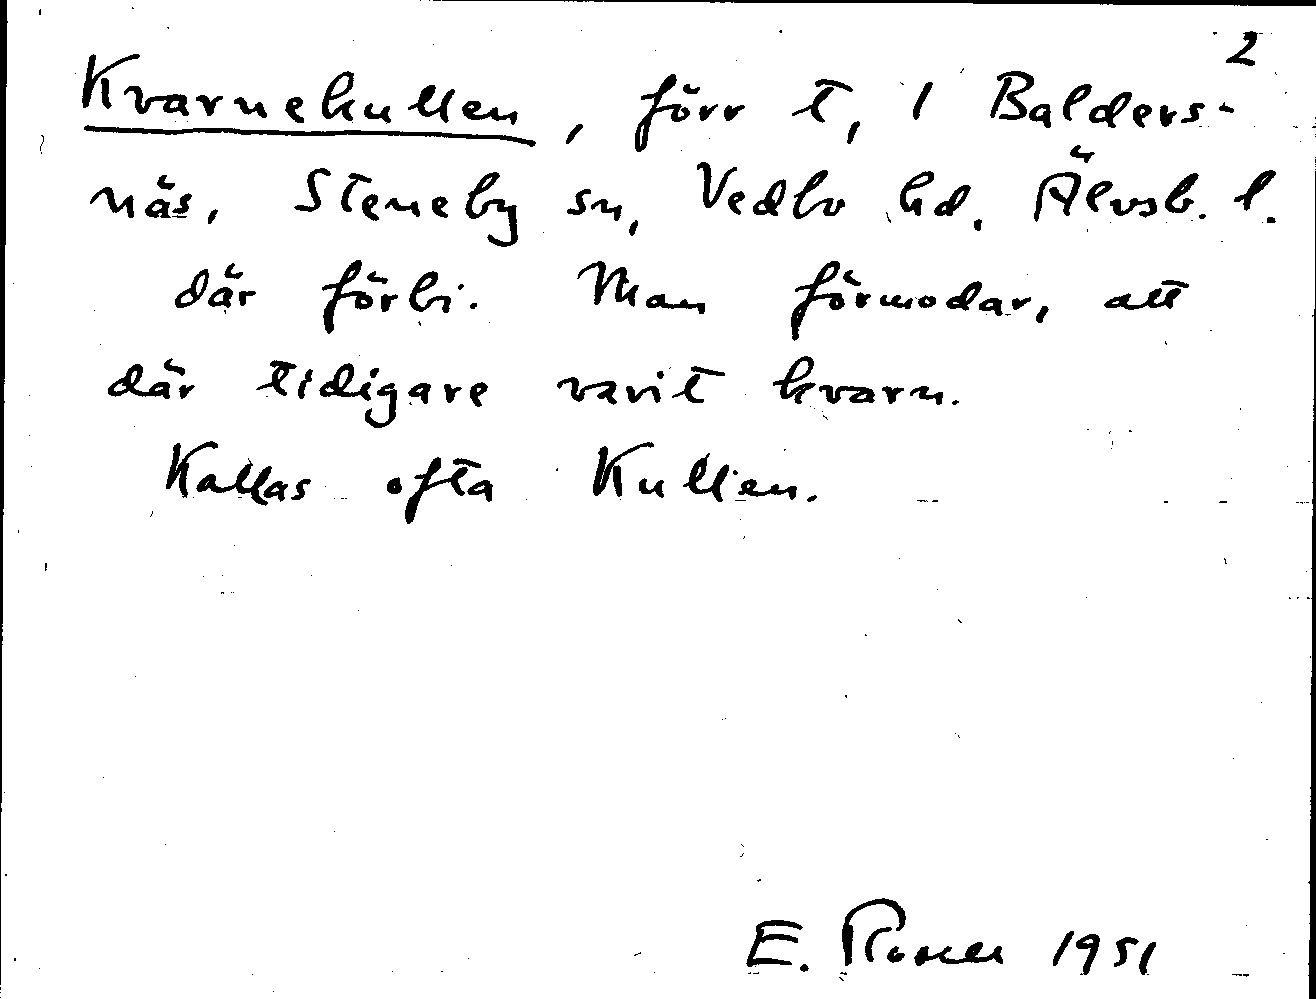 2
Kvarnekullen, förr t, 1 Balders-
näs, Steneby sn, Vedbo hd. Älvsb. l.
där förbi. Man förmodar, att
där tidigare varit kvarn.
Kallas ofta Kullen.
E. Rosen 1951